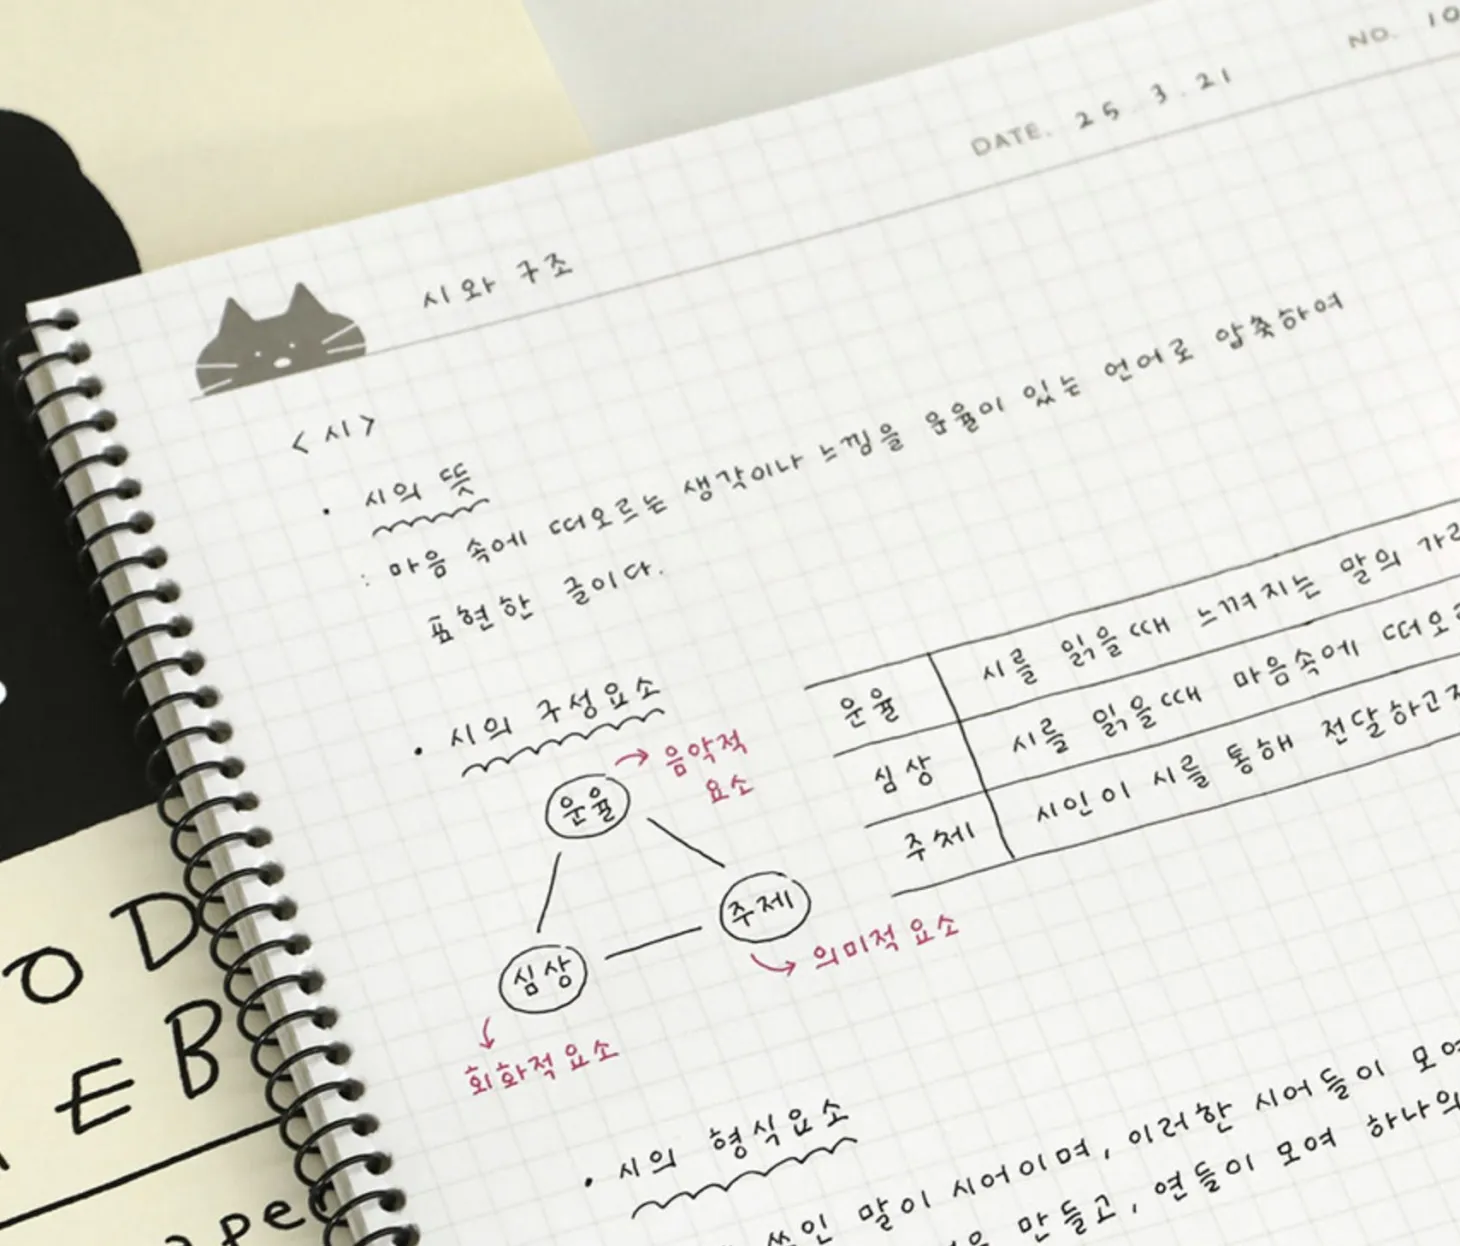 NO. 10
DATE. 25. 3. 21
시와 구조
<시>
· 시의 뜻
: 마음 속에 떠오르는 생각이나 느낌을 운율이 있는 언어로 압축하여
표현한 글이다.
· 시의 구성요소
운율
→ 음악적
요소
주제
→ 의미적 요소
심상
회화적 요소
운율 시를 읽을때 느껴지는 말의
심상 시를 읽을때 마음속에
주제 시인이 시를 통해 전달하고
· 시의 형식요소
쓰인 말이 시어이며, 이러한 시어들이
만들고, 연들이 모여 하나의
O D
E B